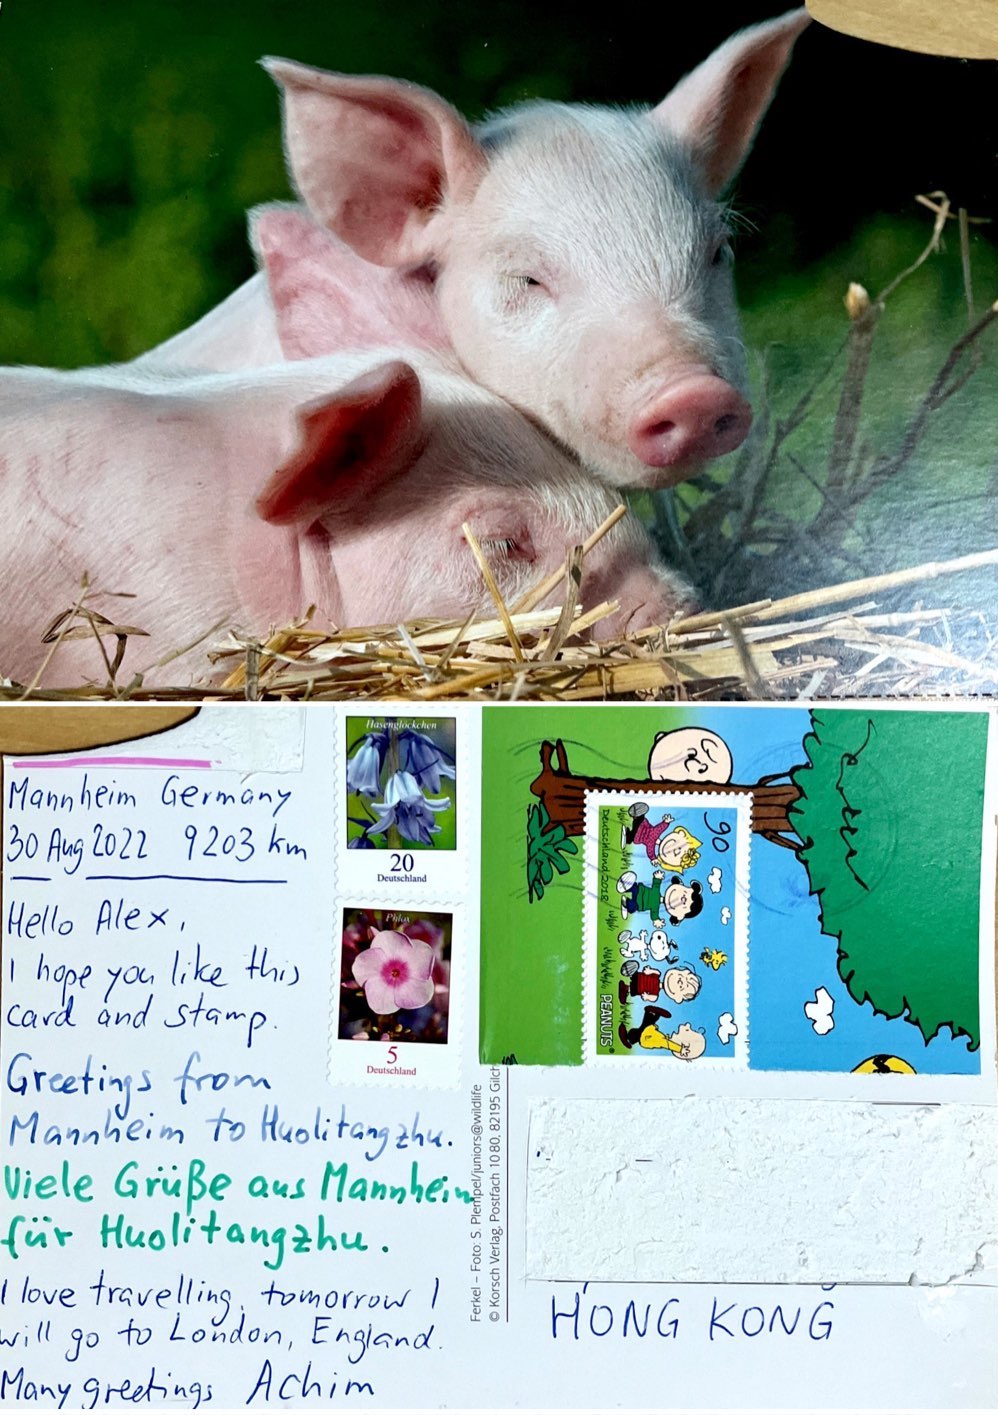 Mannheim Germany
30 Aug 2022 9203 km
Hello Alex,
I hope you like this
card and stamp.
Greetings from
Mannheim to Huolitangzhu.
Viele Grüße aus Mannheim
für Huolitangzhu.
I love travelling, tomorrow I
will go to London, England.
Many greetings Achim
Hasenglöckchen
20
Deutschland
Phlox
5
Deutschland
90
Deutschland 2018
PEANUTS
Ferkel – Foto: S. Plempel/juniors@wildlife
© Korsch Verlag, Postfach 10 80, 82195 Gilch
HONG KONG